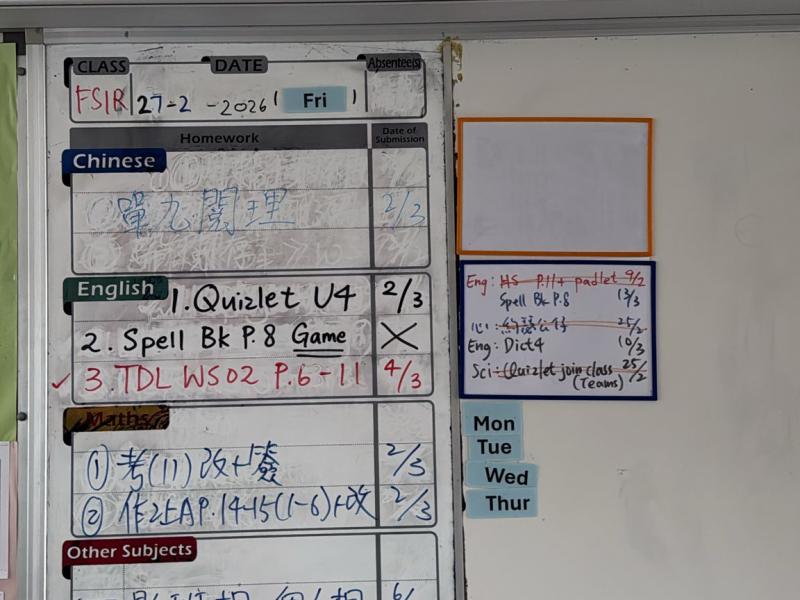 CLASS DATE Absentee(s)
FSIR 27-2-2026 ( Fri )
Homework Date of Submission
Chinese
單九閱理 2/3
English
1. Quizlet U4 2/3
2. Spell Bk P.8 Game ✗
✓ 3. TDL WS02 P.6-11 4/3
Maths
① 考(11)改+簽 2/3
② 作2上A P.14-15(1-6)+改 2/3
Other Subjects
Eng: HS P.11+ padlet 9/2
Spell Bk P.8 13/3
心: 25/2
Eng: Dict 4 10/3
Sci: Quizlet join class 25/2
(Teams)
Mon
Tue
Wed
Thur